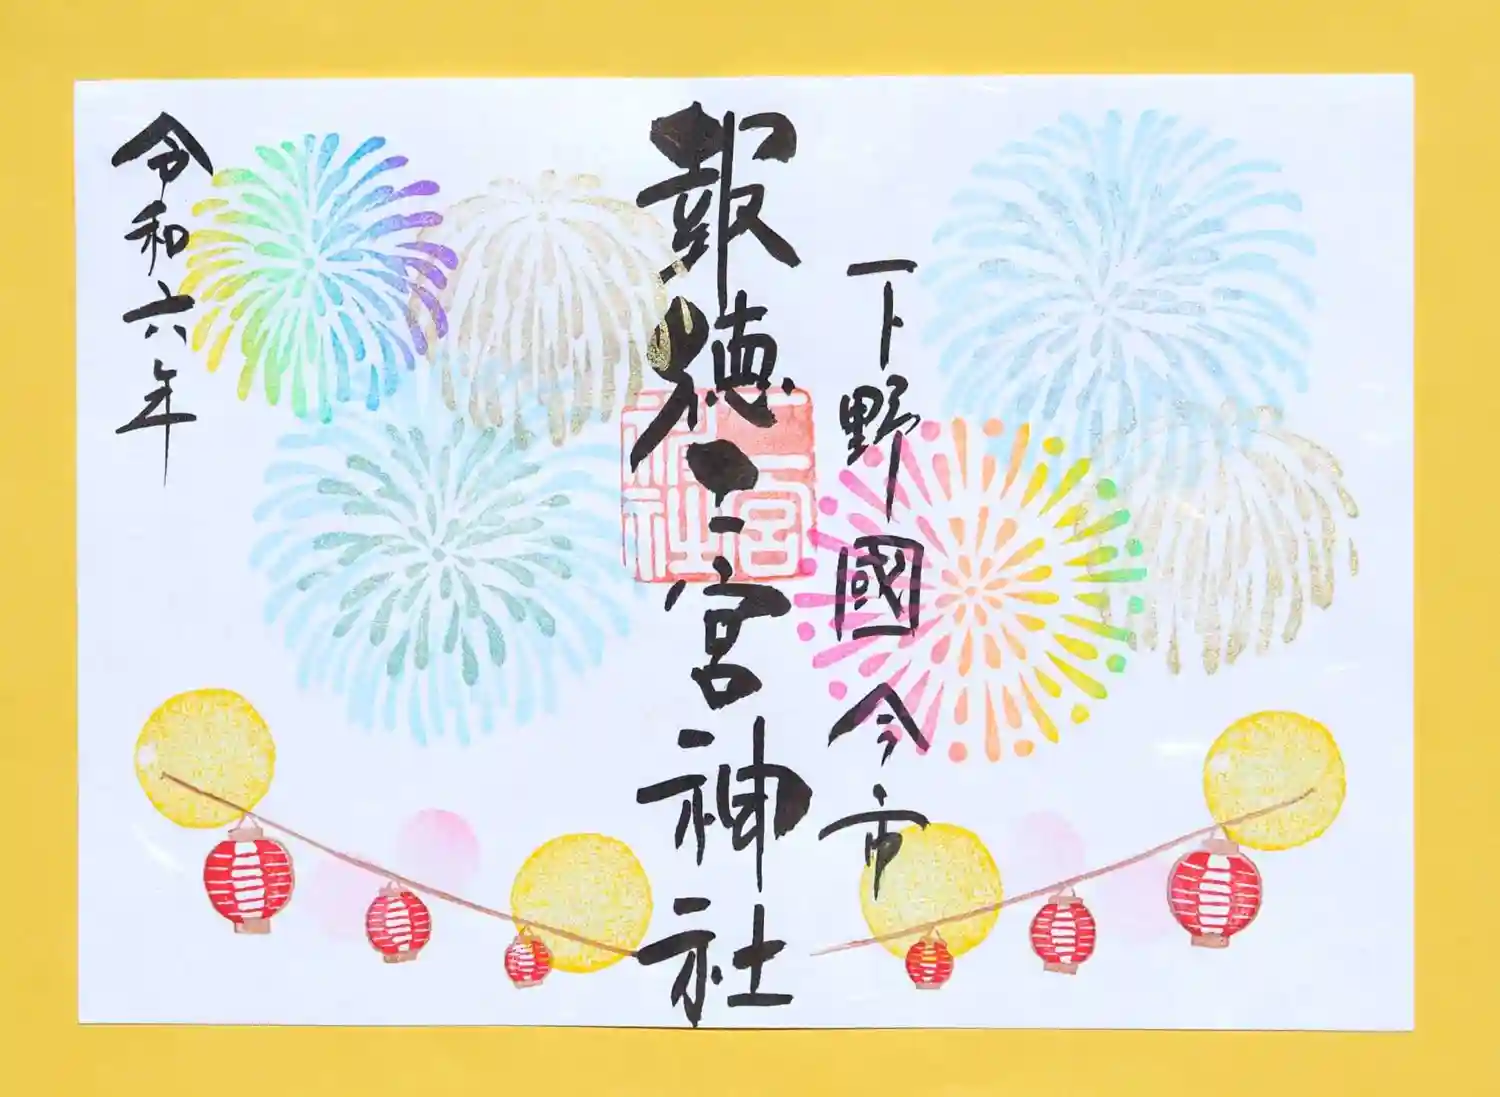 下野國今市
報徳二宮神社
二宮
神社
令和六年